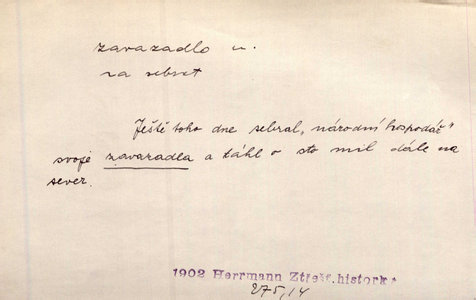 zavazadlo n.
na sebrat
Ještě toho dne sebral „národní hospodář"
svoje zavazadla a táhl o sto mil dále na
sever.
1902 Herrmann Ztřešť. historky
275,14